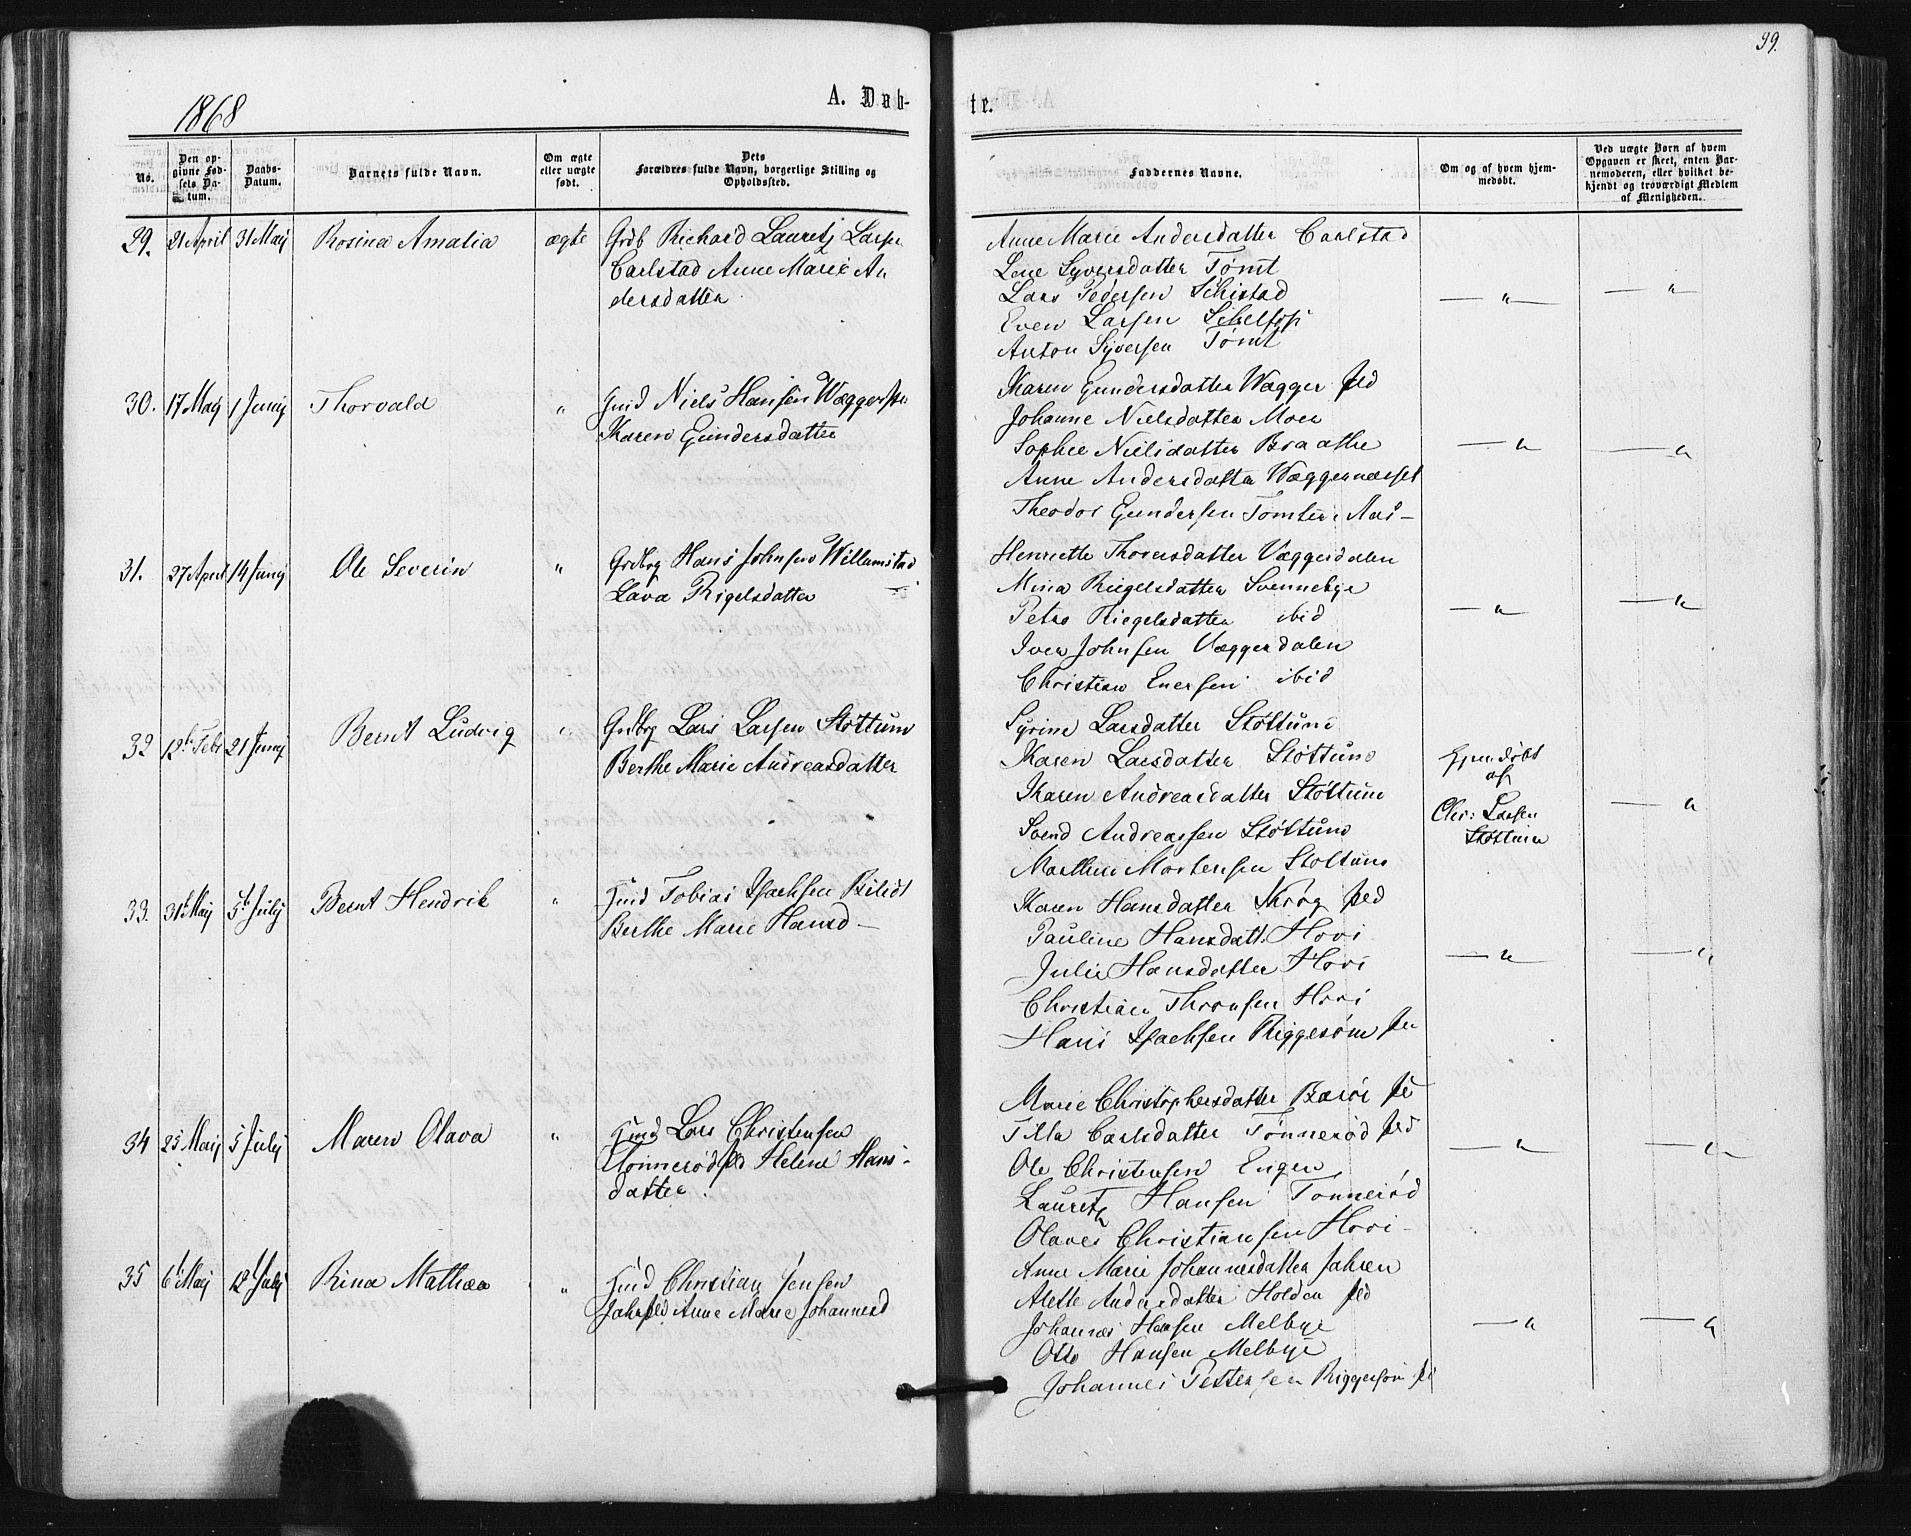 99.
1868
A. Døb-
te.
No.
Den op-
givne Fød-
sels Da-
tum.
Daabs-
Datum.
Barnets fulde Navn.
Om ægte
eller uægte
født.
Dets
Forældres fulde Navn, borgerlige Stilling og
Opholdssted.
Faddernes Navne.
Om og af hvem hjem-
medøbt.
Ved uægte Børn af hvem
Opgaven er skeet, enten Bar-
nemoderen, eller hvilket be-
kjendt og troværdigt Medlem
af Menigheden.
29. 21 April 31 Maij Rosina Amalia ægte
Grdb Richard Lauritz Larsen
Carlstad Anne Marie An
dersdatter
Anne Marie Andersdatter Carlstad
Lene Syversdatter Tømt
Lars Pedersen Schistad
Even Larsen
Anton Syversen Tømt
— " —
— " —
30. 17 Maij 1 Junij Thorvald "
Hmd Niels Hansen
Karen Gundersdatter
Karen Gundersdatter Wægger
Johanne Nielsdatter Moen
Sophie Nielsdatter Braathe
Anne Andersdatter Wæggernæsset
Theodor Gundersen Tomter
— " —
— " —
31. 27 April 14 Junij Ole Severin "
Grdbrg Hans Johnsen Willumstad
Lava Rigelsdatter —
Henriette Thorersdatter Væggerdalen
Mina Riegelsdatter Svennebye
Petra Riegelsdatter ibid
Iver Johnsen Væggerdalen
Christian Enersen ibid
— " —
— " —
32 12 Febr 21 Junij Bernt Ludvig "
Grdbrg Lars Larsen Støttum
Berthe Marie Andreasdatter
Syrine Larsdatter Støttum
Karen Larsdatter Støttum
Karen Andreasdatter Støttum
Svend Andreassen Støttum
Mathin Mortensen Stottum
Hjemdøbt
af
Chr: Larsen
Støttum
— " —
33. 31t Maij 5t Julij Bernt Hendrik "
Hmd Tobias Isachsen Bilidt
Berthe Marie Hansd —
Karen Hansdatter Krog
Pauline Hansdatt. Hovi
Julie Hansdatter Hovi
Christian Thronsen Hovi
Hans Isachsen Riggesøm
— " —
— " —
34 25 Maij 5 Julij Maren Olava "
Hmd Lars Christensen
Tonnerød Helene Hans-
datter.
Marie Christophersdatter
Tilla Carlsdatter Tønnerød
Ole Christensen Engen
Lauretz Hansen Tonnerød
Olaves Christiansen Hovi -
— " —
— " —
35 6t Maij 12t Julij Rina Mathea "
Hmd Christian Jensen
Anne Marie Johannesd
Anne Marie Johannesdatter Jahren
Alette Andersdatter Holden
Johannes Hansen Melbye
Otto Hansen Melbye
Johannes Pettersen
— " —
— " —